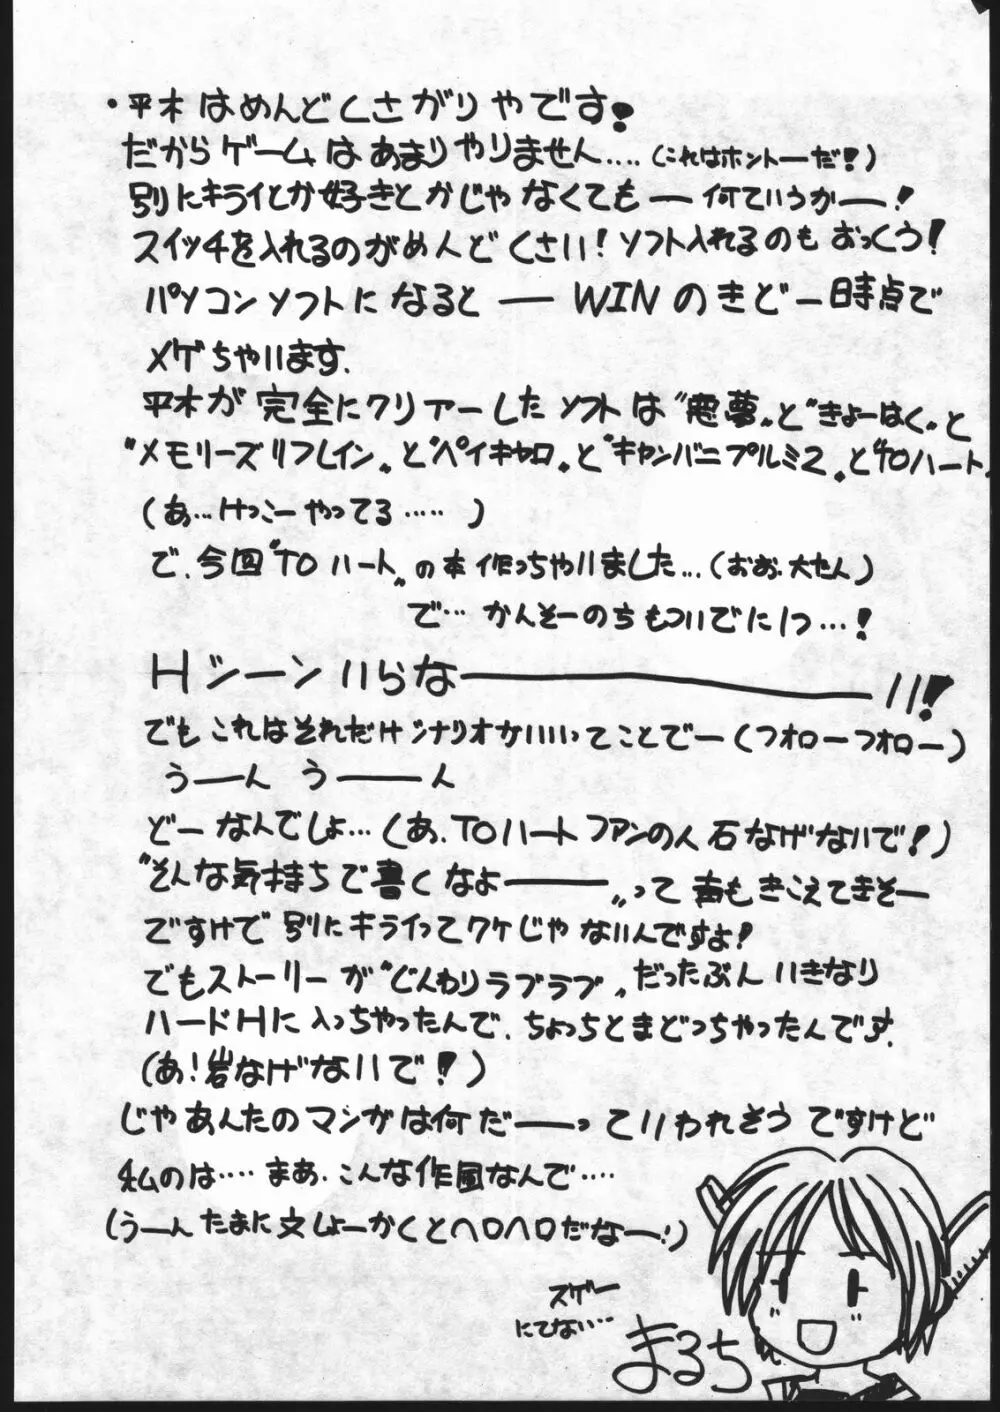 ・平木はめんどくさがりやです!
だからゲームはあまりやりません....(これはホントーだ!)
別にキライとか好きとかじゃなくてもー何ていうかー!
スイッチを入れるのがめんどくさい!ソフト入れるのもおっくう!
パソコンソフトになるとーWINのきどー時点で
メゲちゃいます.
平木が完全にクリアーしたソフトは"悪夢"と"きょーはく"と
"メモリーズリフレイン"と"ペイキャロ"と"キャンバニプルミ2"と"TOハート"
(あ...けっこーやってる.....)
で、今回"TOハート"の本作っちゃいました...(おお、大たん)
で...かんそーのちもついでに1つ...!
Hシーンいらなーーーい!
でもこれはそれだけシナリオがいいってことでー(フォローフォロー)
うーんうーん
どーなんでしょ...(あ、TOハートファンの人石なげないで!)
"そんな気持ちで書くなよーー"って声もきこえてきそー
ですけで別にキライってワケじゃないんですよ!
でもストーリーが"じんわりラブラブ"だったぶんいきなり
ハードHに入っちゃったんで、ちょっととまどっちゃったんです.
(あ!岩なげないで!)
じゃあんたのマンガは何だーーっていわれそうですけど
私のは....まあ、こんな作風なんで....
(うーんたまに文しょーかくとヘロヘロだなー!)
スゲー
にてない...
まるち